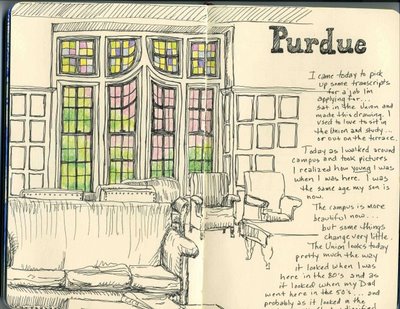 Purdue
I came today to pick
up some transcripts
for a job I'm
applying for...
sat in the Union and
made this drawing. I
used to love to sit in
the Union and study...
or out on the terrace.
Today as I walked around
campus and took pictures
I realized how young I was
when I was here. I was
the same age my son is
now.
The campus is more
beautiful now...
but some things
change very little.
The Union looks today
pretty much the way
it looked when I was
here in the 80's and as
it looked when my Dad
went here in the 50's... and
probably as it looked in the